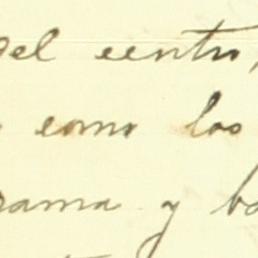 del centro,
como los
rama y ba